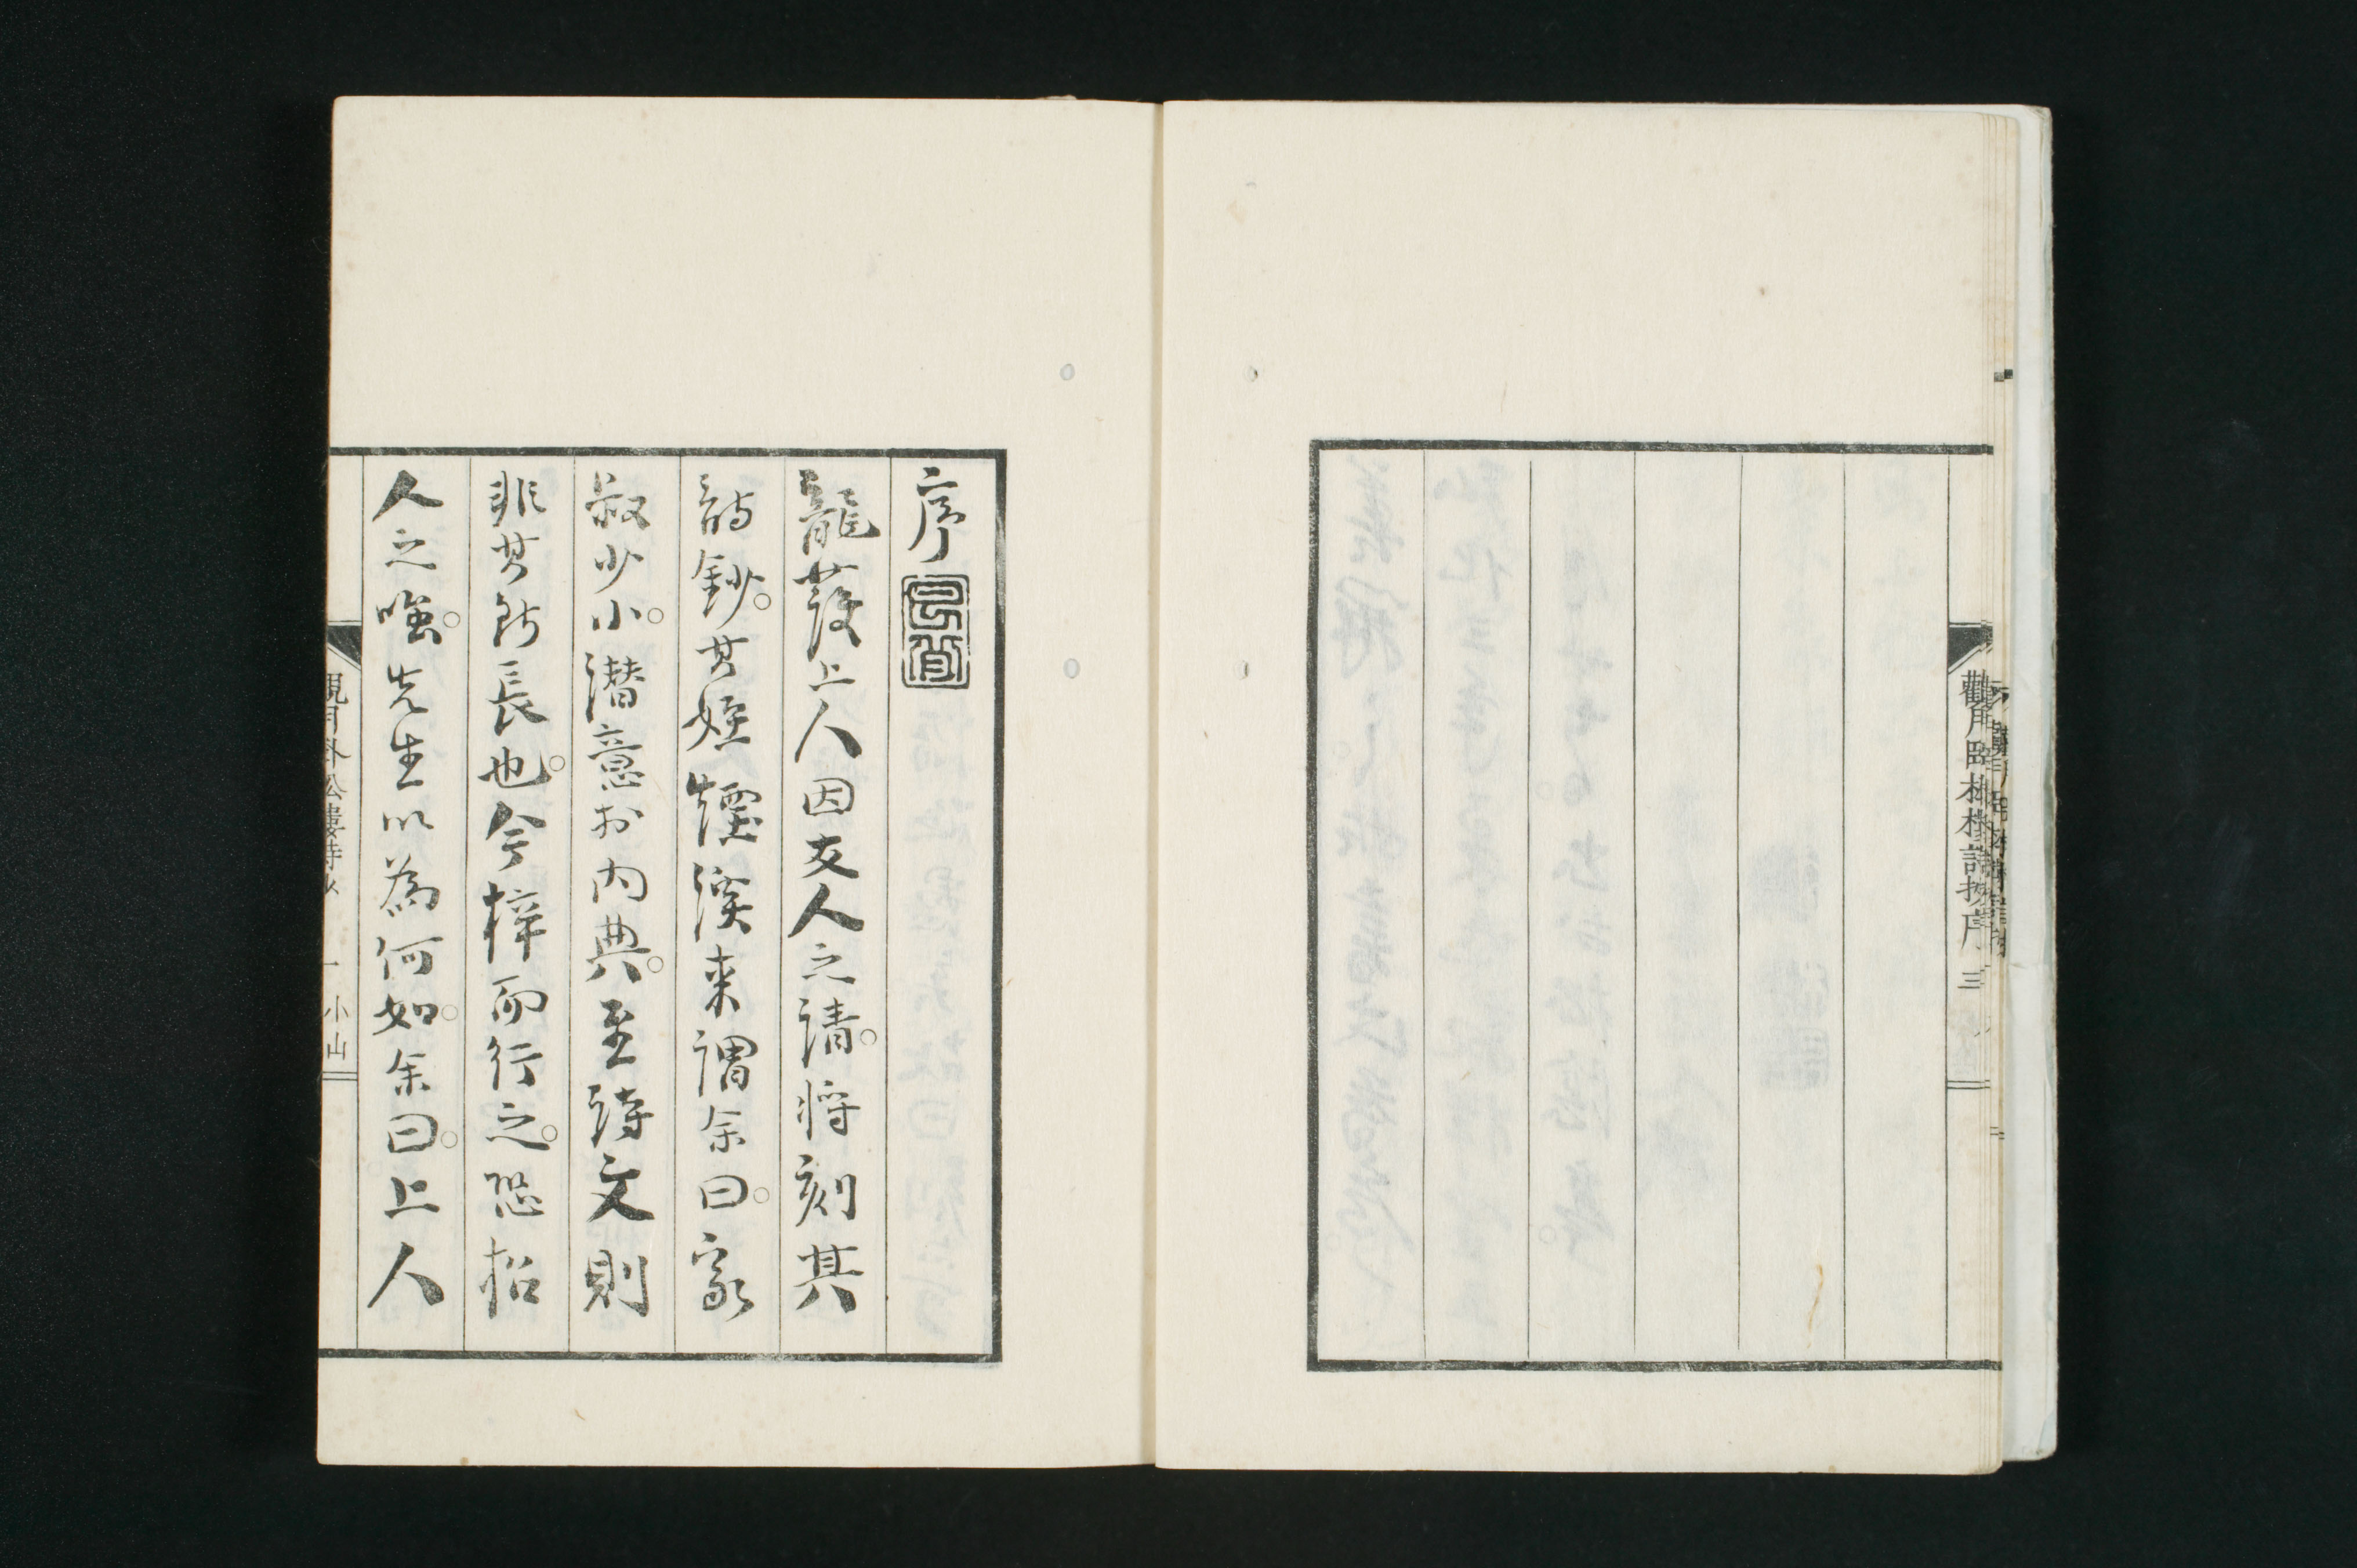 觀月臥松樓詩抄序 三
序
龍護上人因友人之請。將刻其
詩鈔。其姪煙溪来謂余曰。家
叔少小。潛意於内典。至詩文則
非其所長也。今梓而行之。恐招
人之嗤。先生以為何如。余曰。上人
一 小山